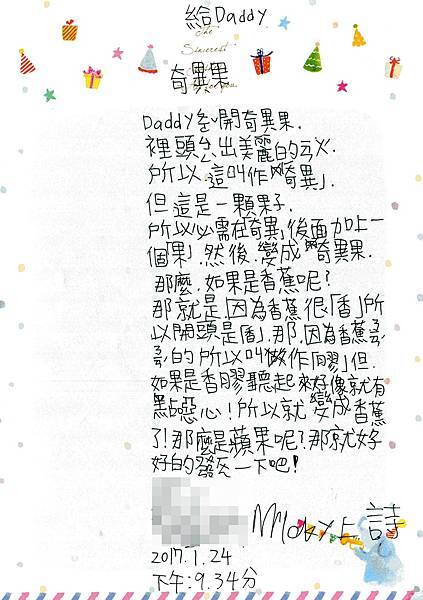 給Daddy
The
Sincerest
for you
奇異果
Daddy 開奇異果.
裡頭 出美麗的
所以.這叫作「奇異」.
但這是一顆果子.
所以必需在「奇異」後面加上一
個「果」.然後.變成「奇異果.
那麼.如果是香蕉呢?
那就是.因為香蕉很「香」所
以開頭是「香」.那.因為香蕉
的所以叫做作「膠」但.
如果是香膠聽起來好像就有
點噁心!所以就變成香蕉
了!那麼是蘋果呢?那就好
好的發 一下吧!
上 詩
2017.1.24
下午:9.34分